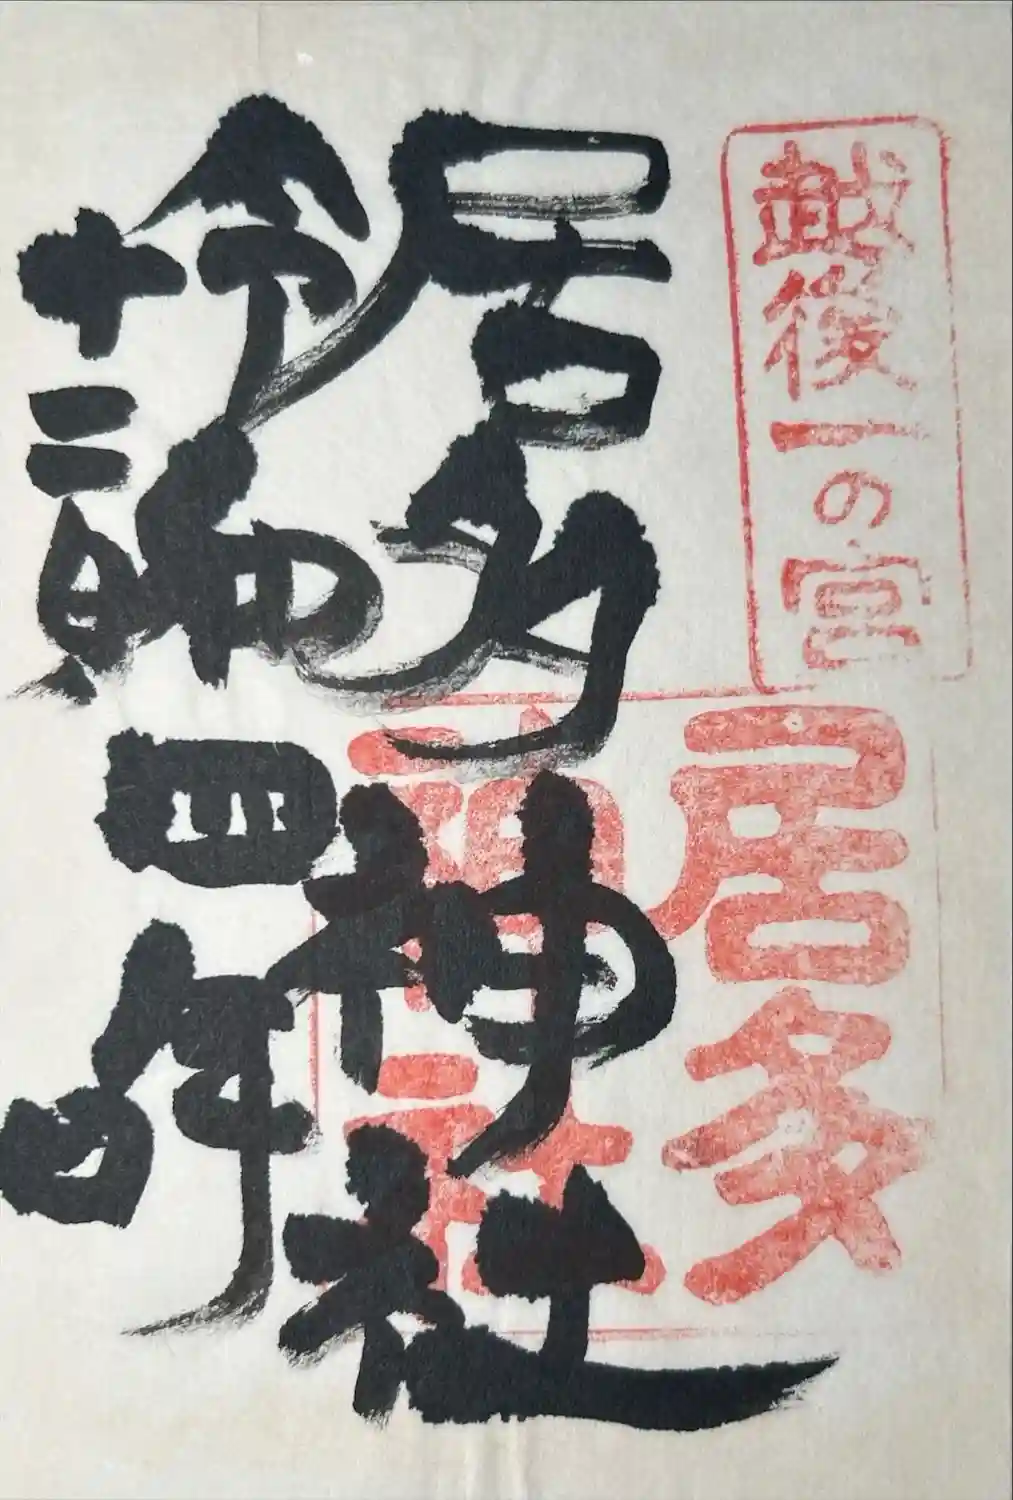 越後一の宮
居多
神社
居多神社
令和四年
十二月日